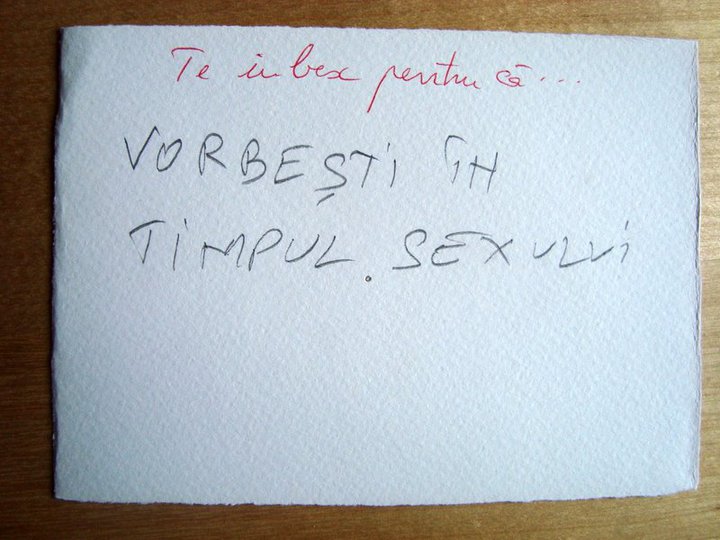 Te iubesc pentru că...
VORBEȘTI ÎN
TIMPUL SEXULUI